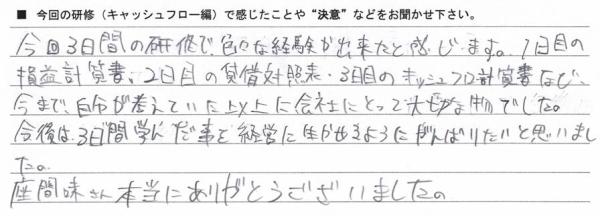 ■ 今回の研修（キャッシュフロー編）で感じたことや“決意”などをお聞かせ下さい。
今回3日間の研修で色々な経験が出来たと感じます。1日目の
損益計算書、2日目の貸借対照表、3日目のキャッシュフロ計算書など、
今まで、自分が考えていた以上に会社にとって大切な物でした。
今後は、3日間学んだ事を経営に生かせるようにがんばりたいと思いまし
た。
座間味さん本当にありがとうございました。